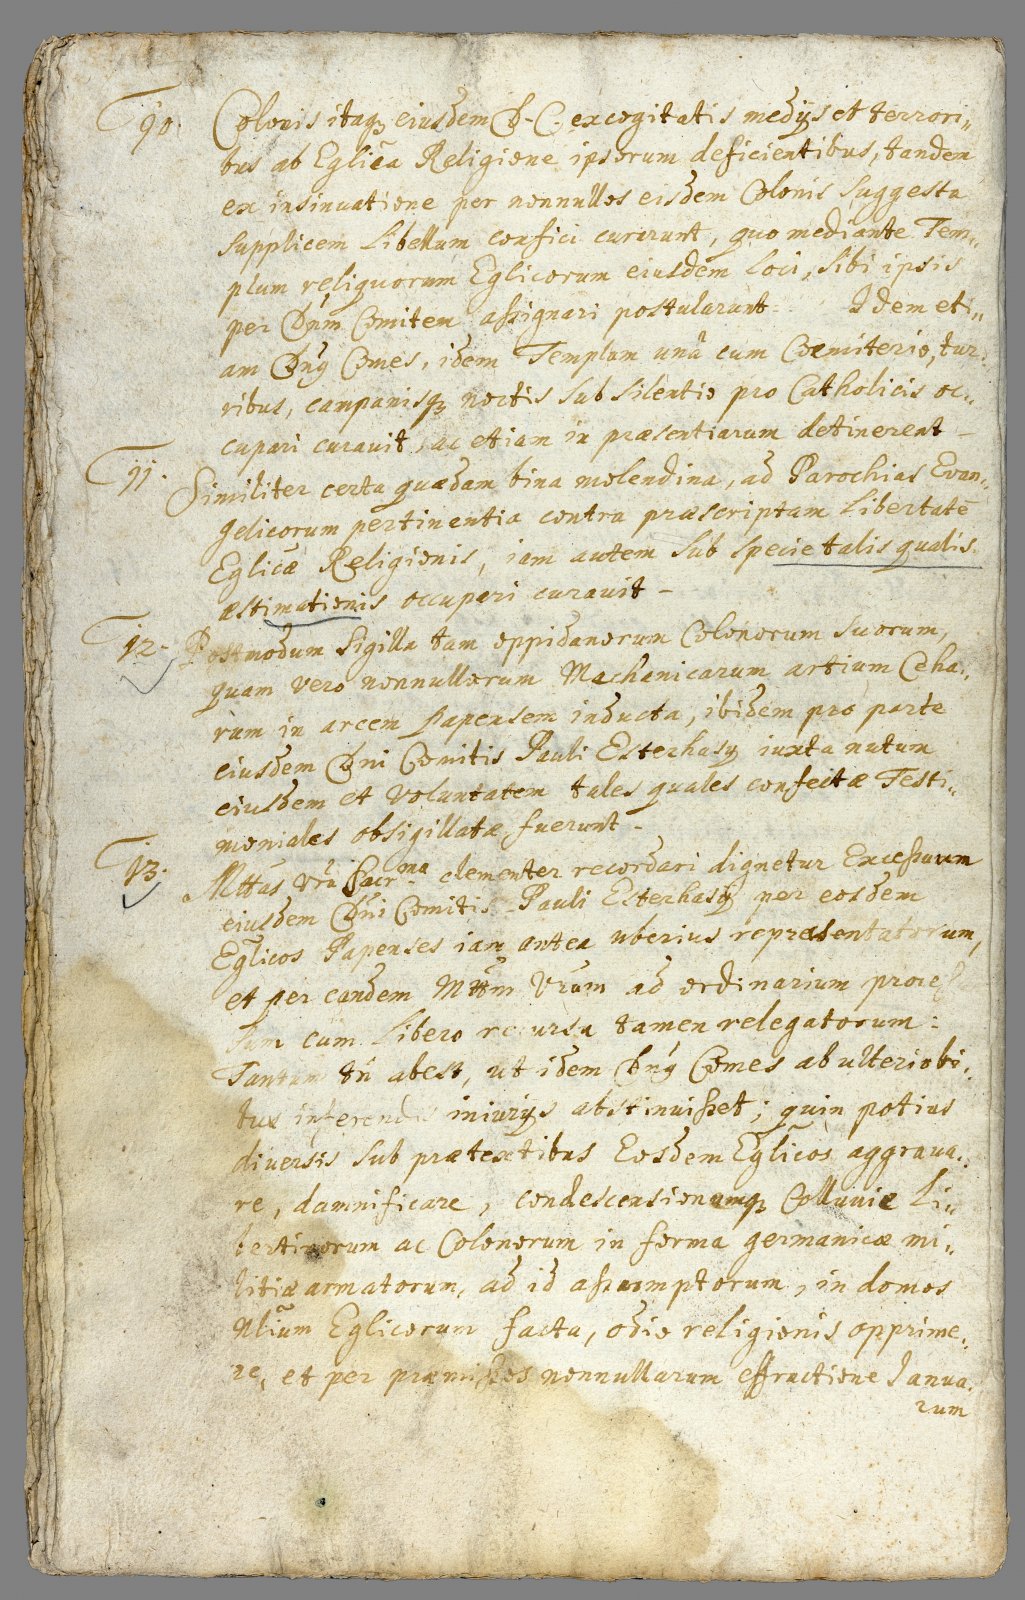 10. Colonis itaq; eiusdem D. C. excogitatis medijs et terrori„
bus ab Eglica Religione ipsorum deficientibus, tandem
ex insinuatione per nonnullos eisdem Colonis suggesta
supplicem Libellum confici curarunt, quo mediante Tem„
plum reliquorum Eglicorum eiusdem loci, sibi ipsis
per Dnm Comitem assignari postularunt. Idem eti„
am Dnq Comes, idem Templum unà cum Coemiterio, tur„
ribus, campanisq; noctis sub silentio pro Catholicis oc„
cupari curauit, ac etiam in praesentiarum detinerent –
11. Similiter certa quaedam bina molendina, ad Parochias Evan„
gelicorum pertinentia contra praescriptam Libertatē
Eglicae Religionis, iam autem sub specie talis qualis
aestimationis occupari curauit –
12. Postmodum Sigilla tam oppidanorum Colonorum suorum,
quam vero nonnullorum Mechanicarum artium Ceha„
rum in arcem Papensem inducta, ibidem pro parte
eiusdem Dni Comitis Pauli Esterhasÿ iuxta nutum
eiusdem et voluntatem tales quales confectae Testi„
moniales obsigillatae fuerunt –
13. Mttas Vrā Sacr.ma clementer recordari dignetur Excessuum
eiusdem Dni Comitis Pauli Esterhasÿ per eosdem
Eglicos Papenses iam antea uberius repraesentatorum,
et per eandem Mttm Vram ad ordinarium proces
sum cum Libero recursu tamen relegatorum:
Tantum tn abest, ut idem Dnq Comes ab ulteriobi„
bus inferendis iniurijs abstinuisset; quin potius
diuersis sub praetextibus Eosdem Eglicos aggraua„
re, damnificare, condescensionemq; Colluuie Li„
bertinorum ac Colonorum in forma germanicae mi„
litiae armatorum, ad id assumptorum, in domos
Nlium Eglicorum facta, odio religionis opprime„
re, et per praemissos nonnullarum effractione Janua„
rum